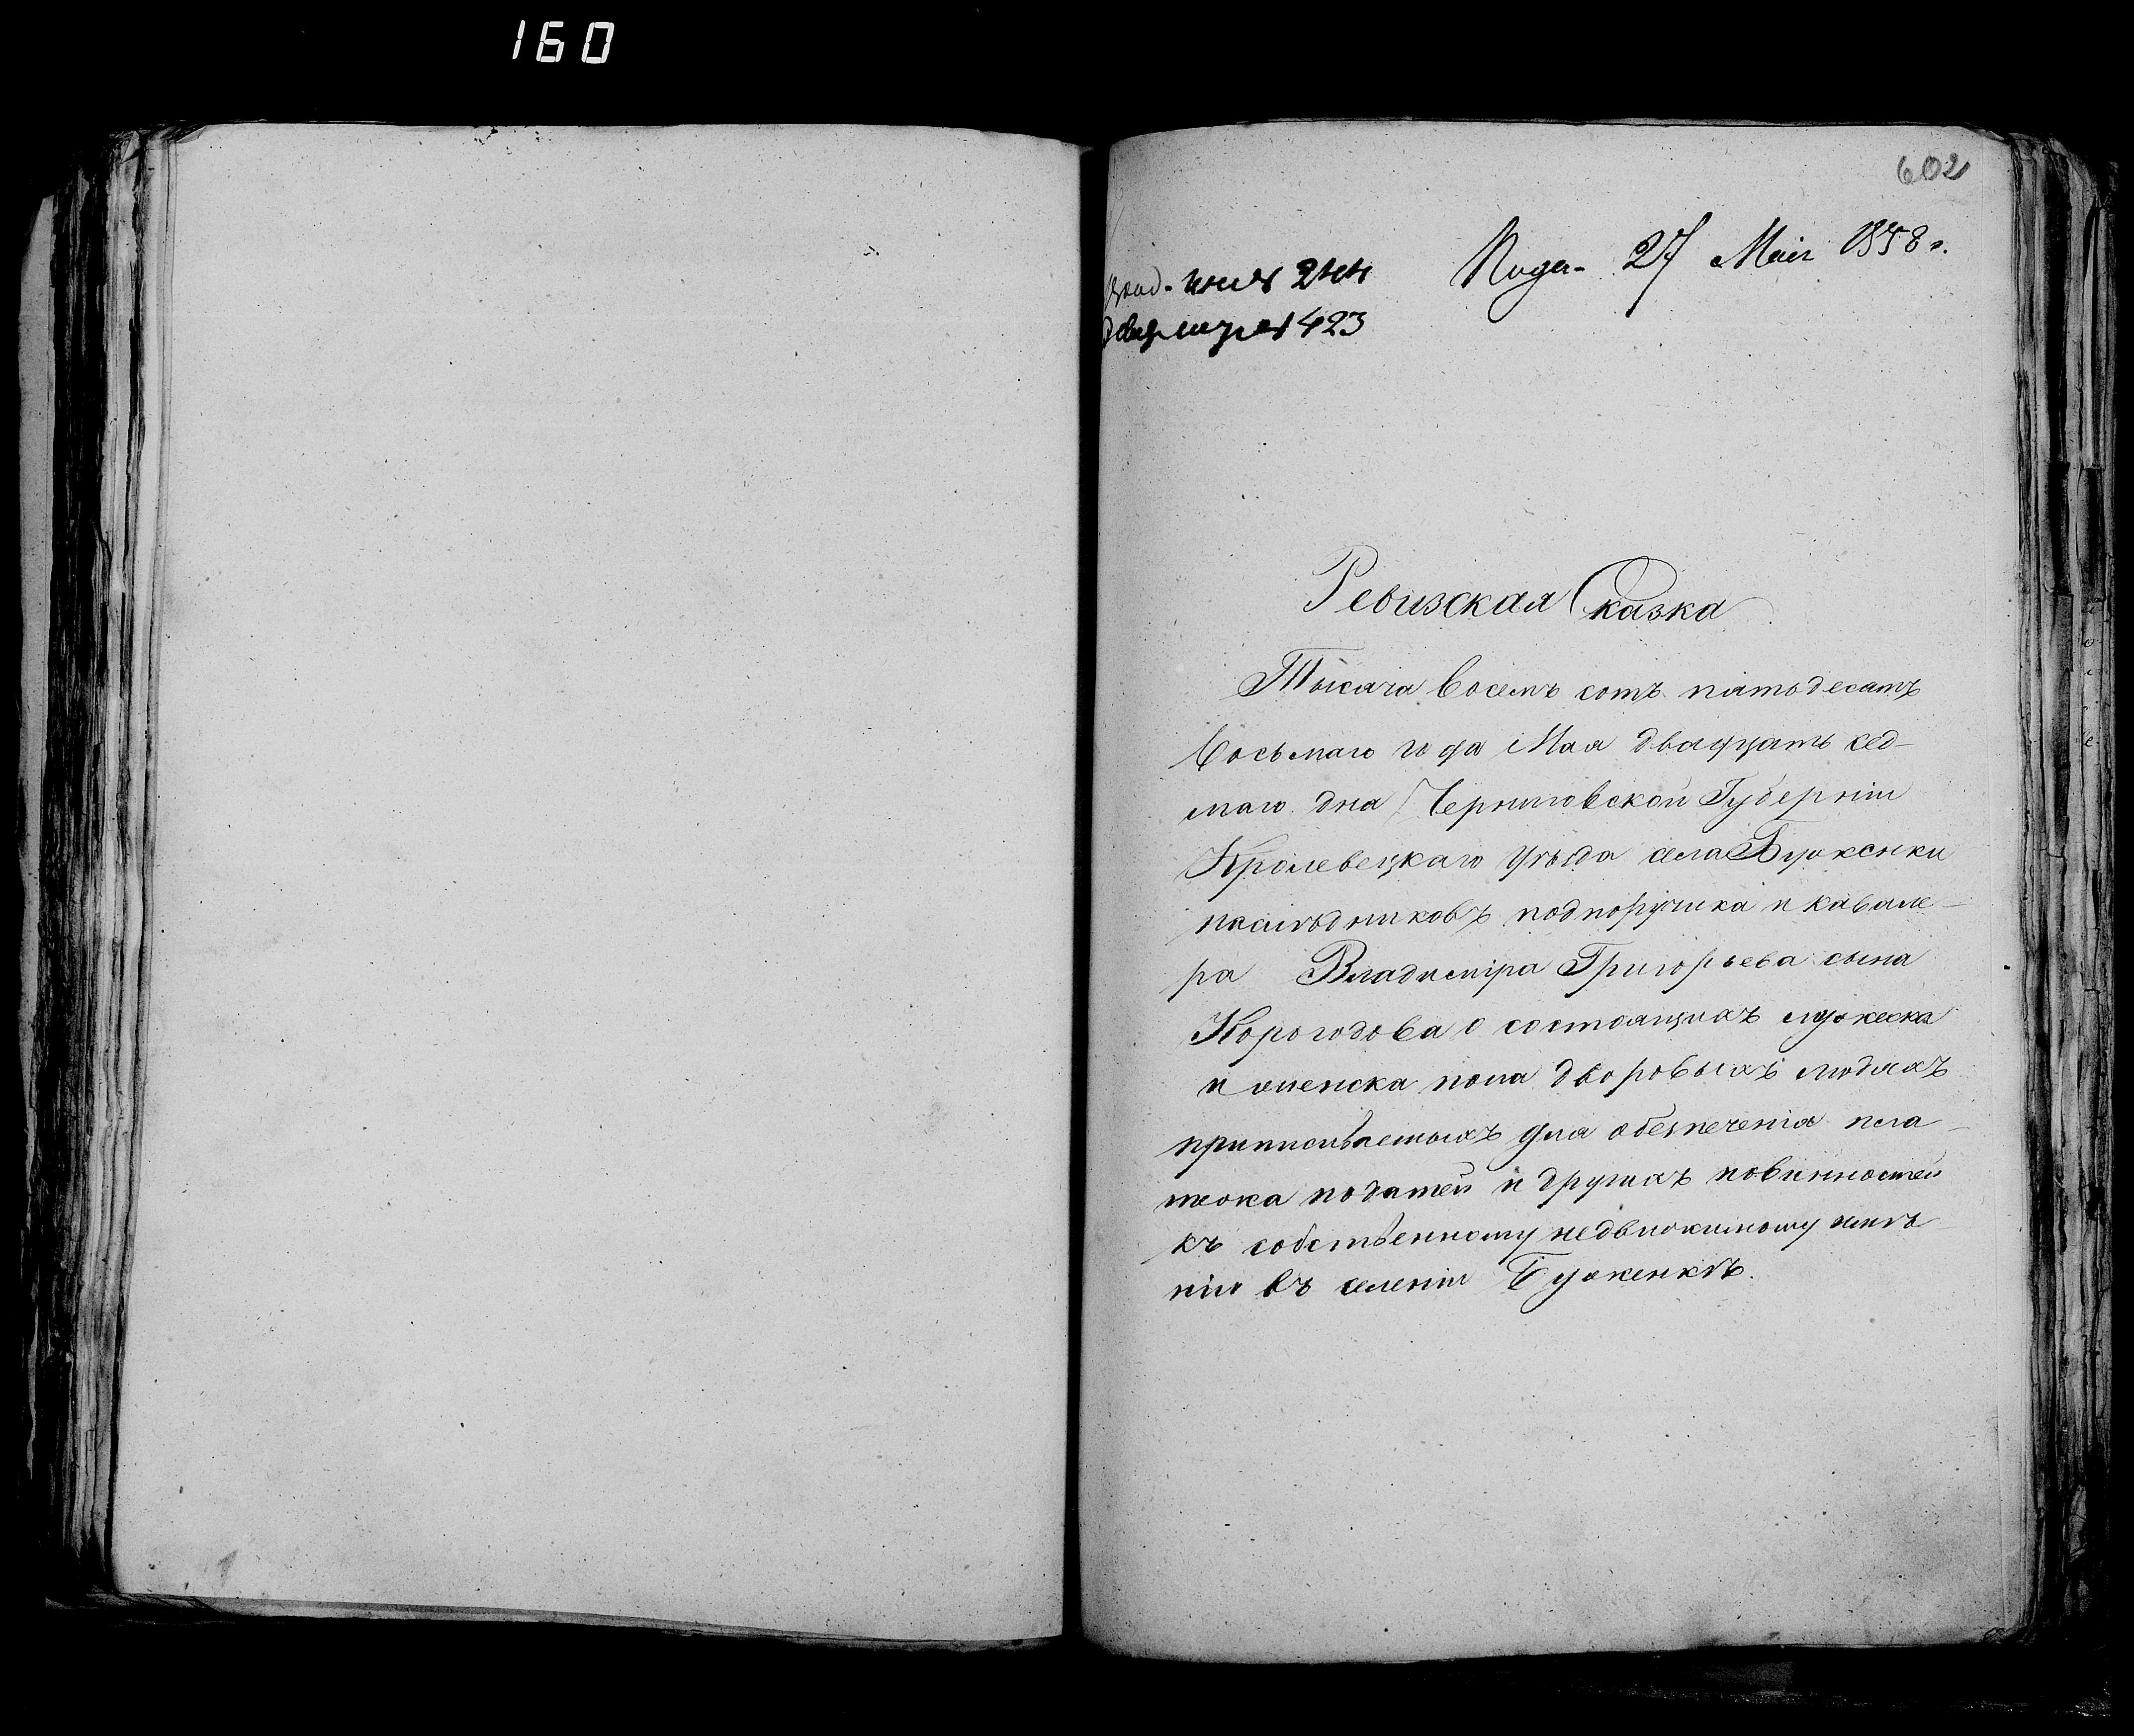 160
602
Пода. 27 Мая 1858 г.
423
Ревизская Сказка
Тысяча восемъ сотъ пятьдесятъ
восьмаго года Мая двадцать сед-
маго дня Черниговской Губерніи
Кролевецкаго уѣзда села Бужснки
наслѣдниковъ подпоручика и кавале-
ра Владиміра Григорьева сына
Корогодова о состоящихъ мужеска
и женска пола дворовыхъ людяхъ
приписываемыхъ для обезпеченія пла-
тежа податей и другихъ повинностей
къ собственному недвижимому имѣ-
нію въ селеніи Буженкѣ.